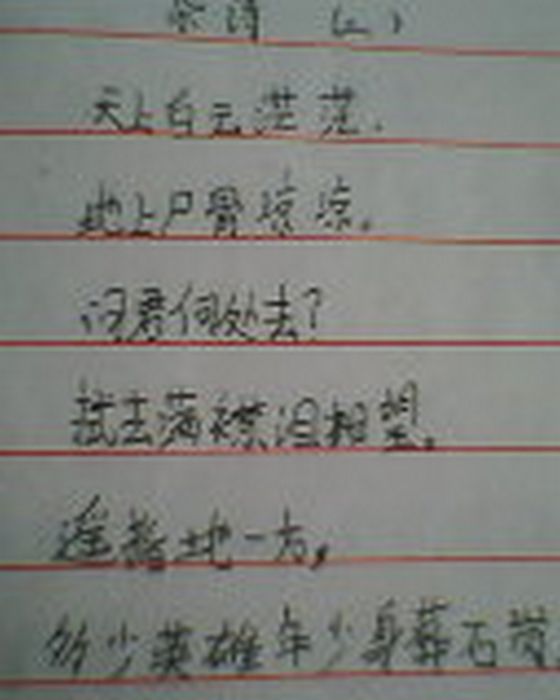 (二)
天上白云茫茫.
地上尸骨凉凉。
问君何处去?
拭去满襟泪相望。
遥指地一方,
多少英雄年少身葬石岗